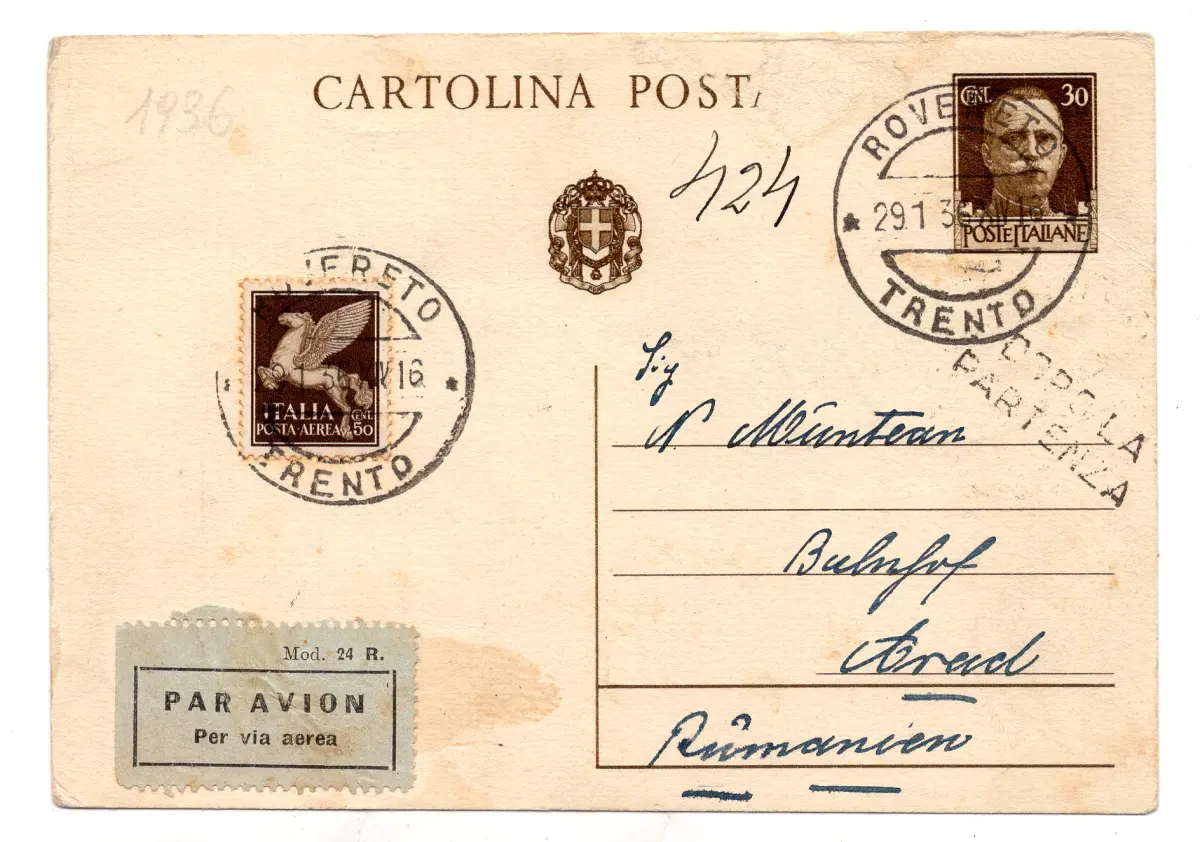 1936
CARTOLINA POSTA
424
CENT. 30
POSTE ITALIANE
ROVERETO
29.1 36 XIV 16
TRENTO
DOPO LA
PARTENZA
ROVERETO
29.1 36 XIV 16
TRENTO
ITALIA
POSTA·AEREA CENT. 50
Sig
N Müntean
Bahnhof
Arad
Rûmanien
Mod. 24 R.
PAR AVION
Per via aerea